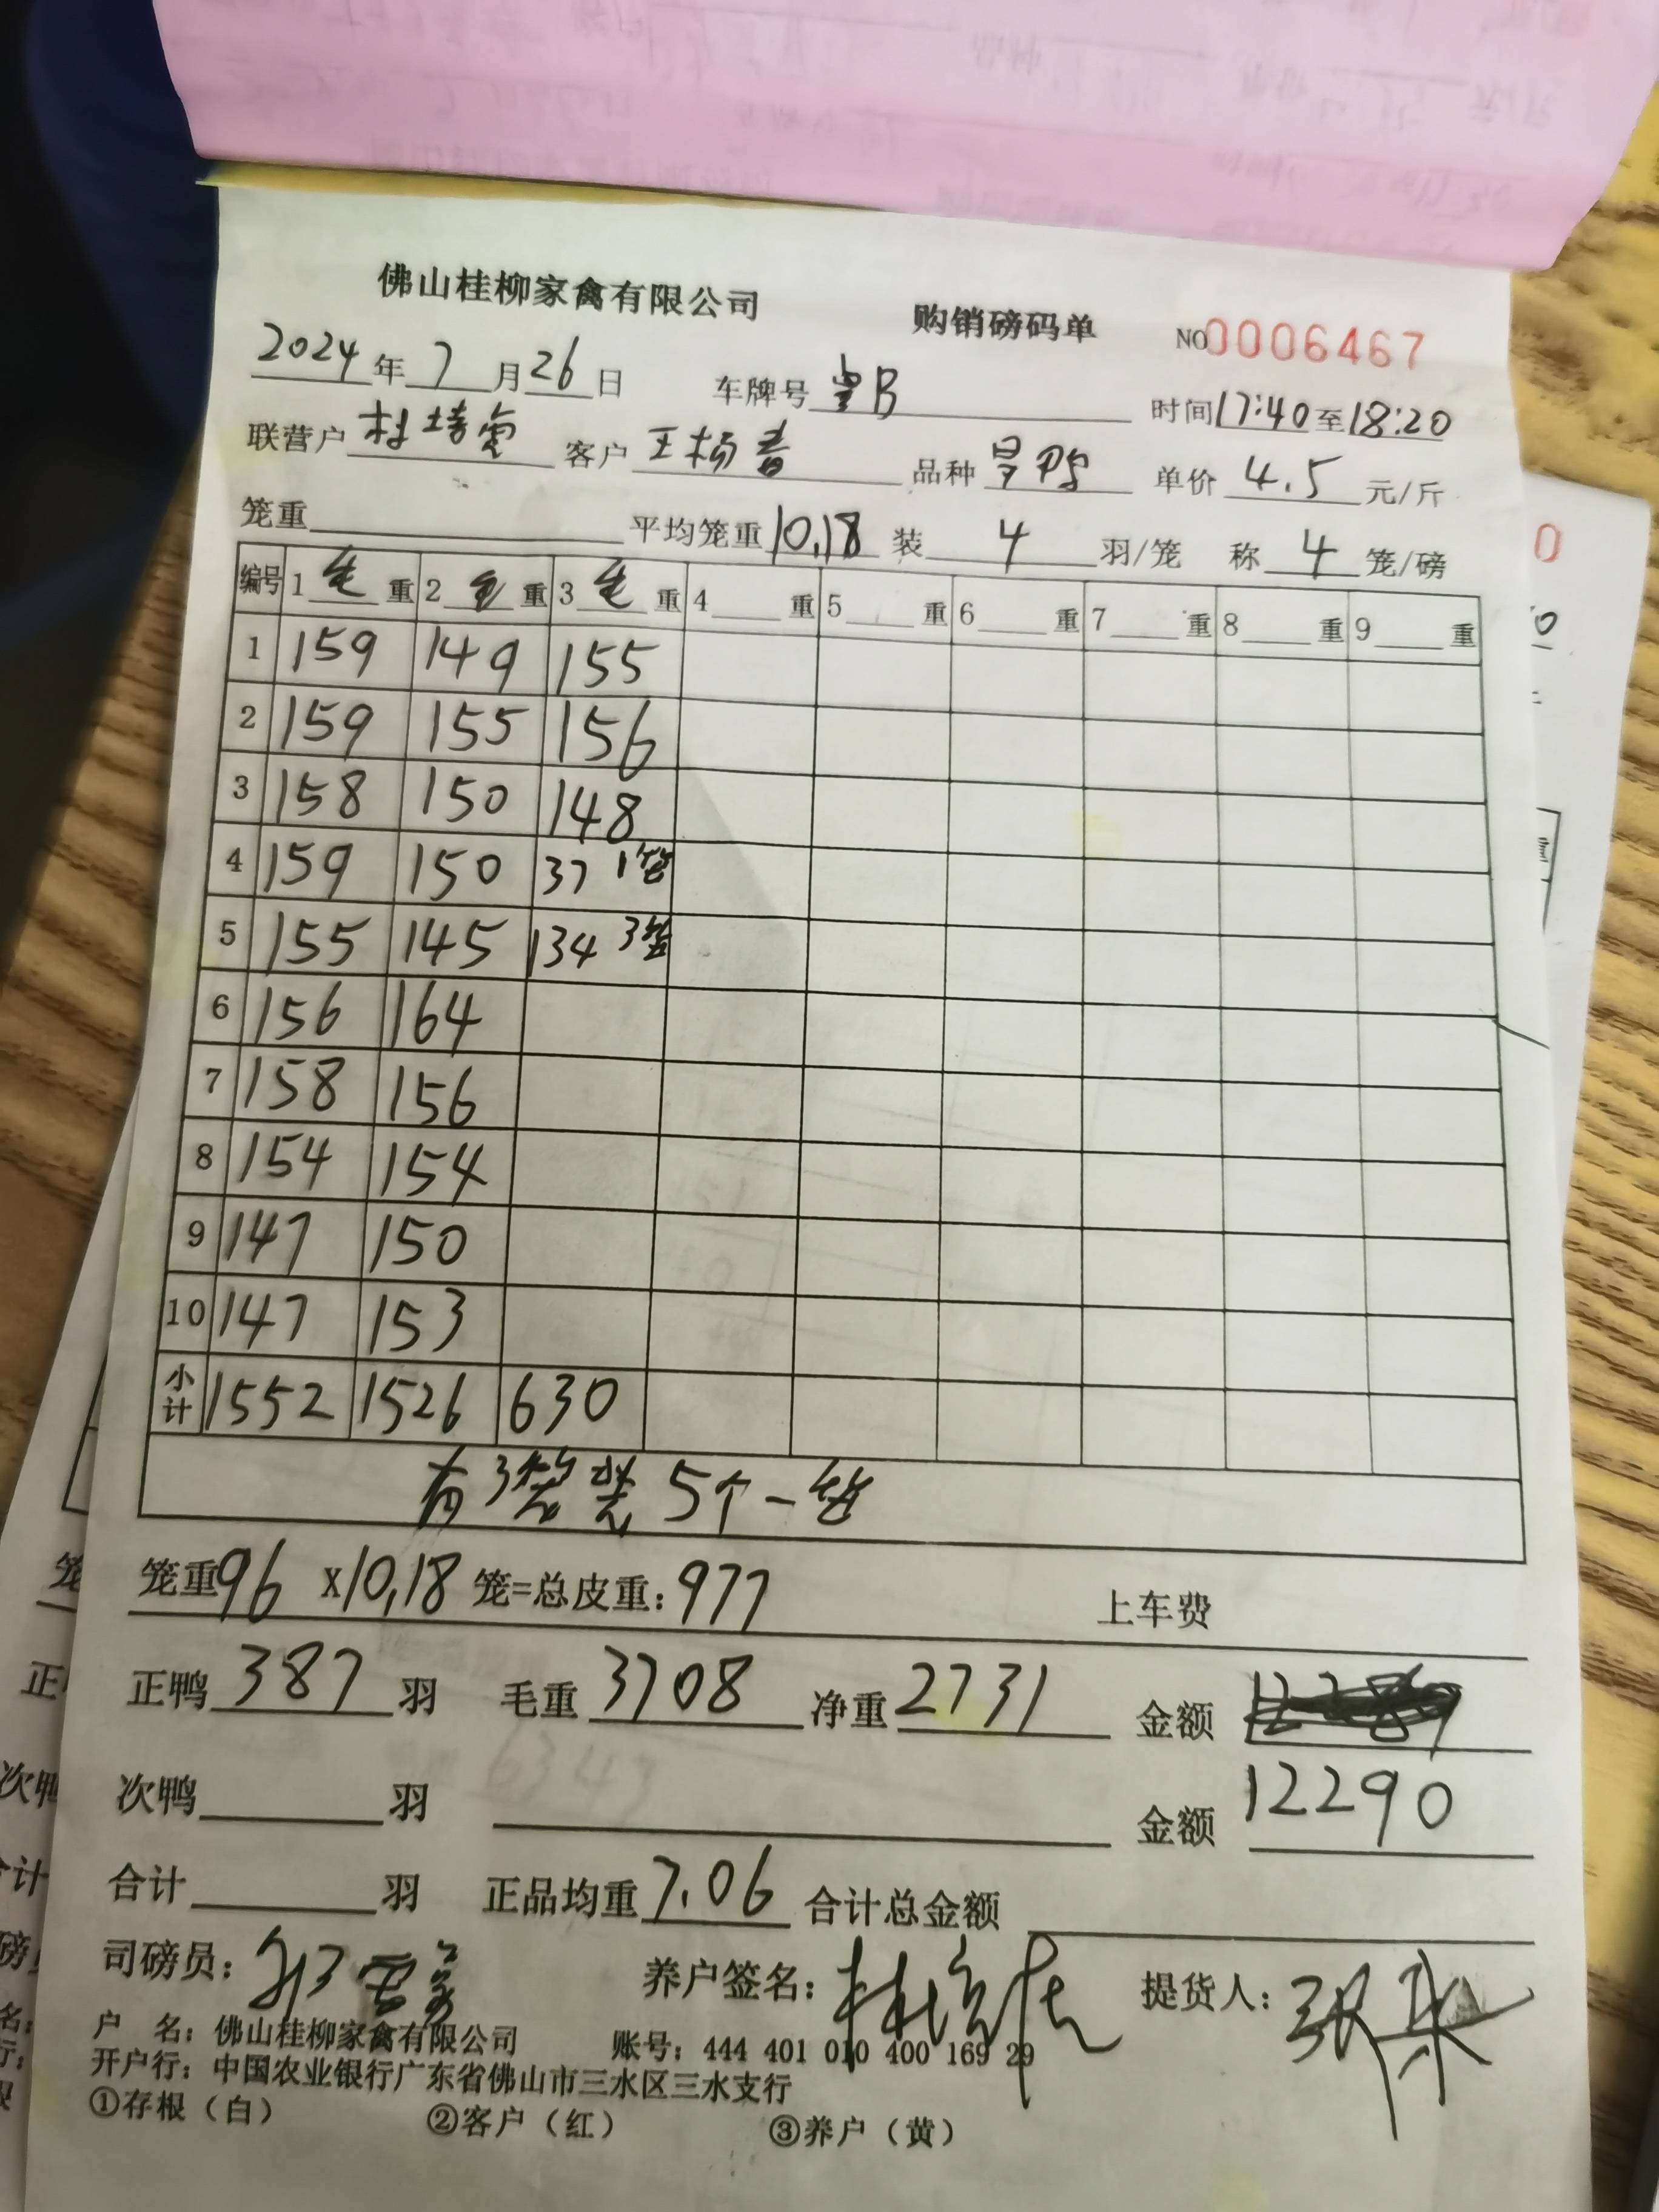 佛山桂柳家禽有限公司 购销磅码单 NO0006467
2024年7月26日 车牌号 皇B 时间17:40至18:20
联营户 客户 王杨春 品种 单价 4.5 元/斤
笼重 平均笼重10.18 装 4 羽/笼 称 4 笼/磅
编号 1 毛 重 2 毛 重 3 毛 重 4 重 5 重 6 重 7 重 8 重 9 重
1 159 149 155
2 159 155 156
3 158 150 148
4 159 150 37 1笼
5 155 145 134 3笼
6 156 164
7 158 156
8 154 154
9 147 150
10 147 153
小计 1552 1526 630
有3笼装5个一笼
笼重96 X10.18 笼=总皮重:977 上车费
正鸭 387 羽 毛重 3708 净重 2731 金额
次鸭 羽 金额 12290
合计 羽 正品均重 7.06 合计总金额
司磅员: 养户签名: 提货人:
户 名:佛山桂柳家禽有限公司 账号:444 401 010 400 169 29
开户行:中国农业银行广东省佛山市三水区三水支行
①存根(白) ②客户(红) ③养户(黄)